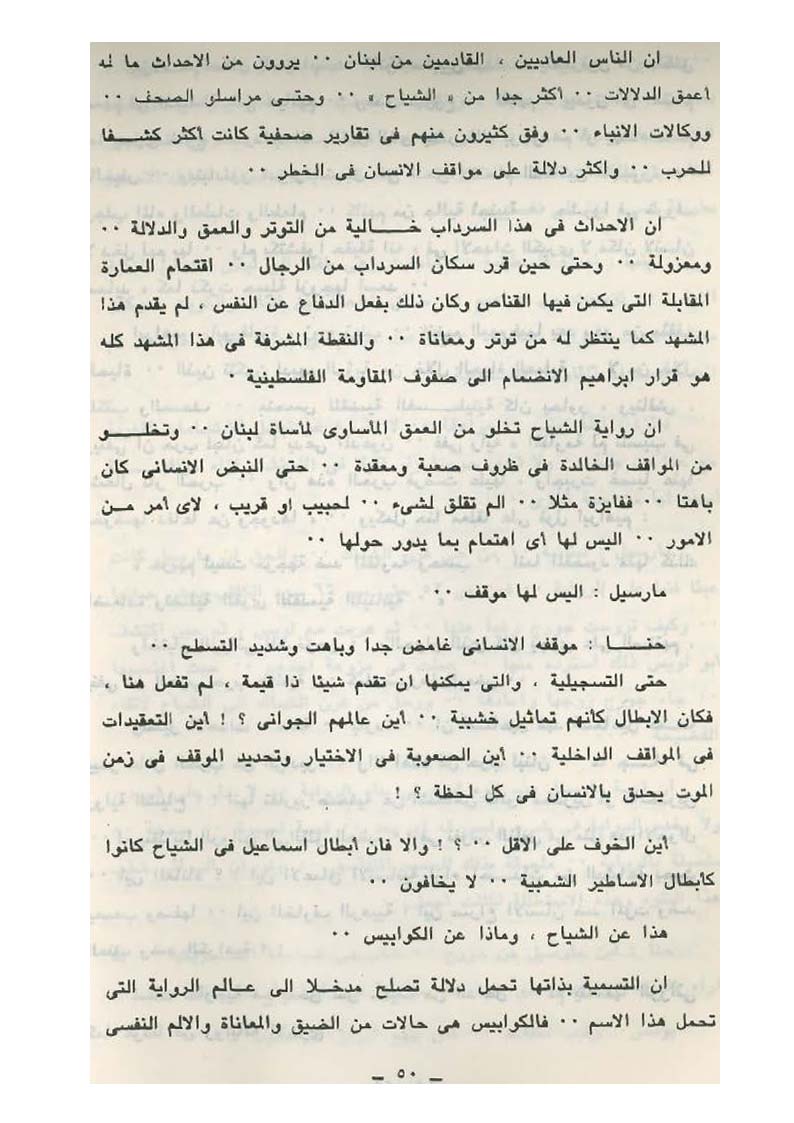 ان الناس العاديين ، القادمين من لبنان ۰۰ يروون من الاحداث ما له
أعمق الدلالات ۰۰ أكثر جدا من « الشياح » ۰۰ وحتى مراسلو الصحف ۰۰
ووكالات الانباء ۰۰ وفق كثيرون منهم فى تقارير صحفية كانت أكثر كشفا
للحرب ۰۰ واكثر دلالة على مواقف الانسان فى الخطر ۰۰
ان الاحداث فى هذا السرداب خالية من التوتر والعمق والدلالة ۰۰
ومعزولة ۰۰ وحتى حين قرر سكان السرداب من الرجال ۰۰ اقتحام العمارة
المقابلة التى يكمن فيها القناص وكان ذلك بفعل الدفاع عن النفس ، لم يقدم هذا
المشهد كما ينتظر له من توتر ومعاناة ۰۰ والنقطة المشرفة فى هذا المشهد كله
هو قرار ابراهيم الانضمام الى صفوف المقاومة الفلسطينية ۰
ان رواية الشياح تخلو من العمق المأساوى لمأساة لبنان ۰۰ وتخلو
من المواقف الخالدة فى ظروف صعبة ومعقدة ۰۰ حتى النبض الانسانى كان
باهتا ۰۰ ففايزة مثلا ۰۰ الم تقلق لشىء ۰۰ لحبيب او قريب ، لاى أمر من
الامور ۰۰ اليس لها أى اهتمام بما يدور حولها ۰۰
مارسيل : اليس لها موقف ۰۰
حنا : موقفه الانسانى غامض جدا وباهت وشديد التسطح ۰۰
حتى التسجيلية ، والتى يمكنها ان تقدم شيئا ذا قيمة ، لم تفعل هنا ،
فكان الابطال كأنهم تماثيل خشبية ۰۰ أين عالمهم الجوانى ؟ ! أين التعقيدات
فى المواقف الداخلية ۰۰ أين الصعوبة فى الاختيار وتحديد الموقف فى زمن
الموت يحدق بالانسان فى كل لحظة ؟ !
أين الخوف على الاقل ۰۰ ؟ ! والا فان أبطال اسماعيل فى الشياح كانوا
كأبطال الاساطير الشعبية ۰۰ لا يخافون ۰۰
هذا عن الشياح ، وماذا عن الكوابيس ۰۰
ان التسمية بذاتها تحمل دلالة تصلح مدخلا الى عالم الرواية التى
تحمل هذا الاسم ۰۰ فالكوابيس هى حالات من الضيق والمعاناة والالم النفسى
ــ ۵۰ ــ